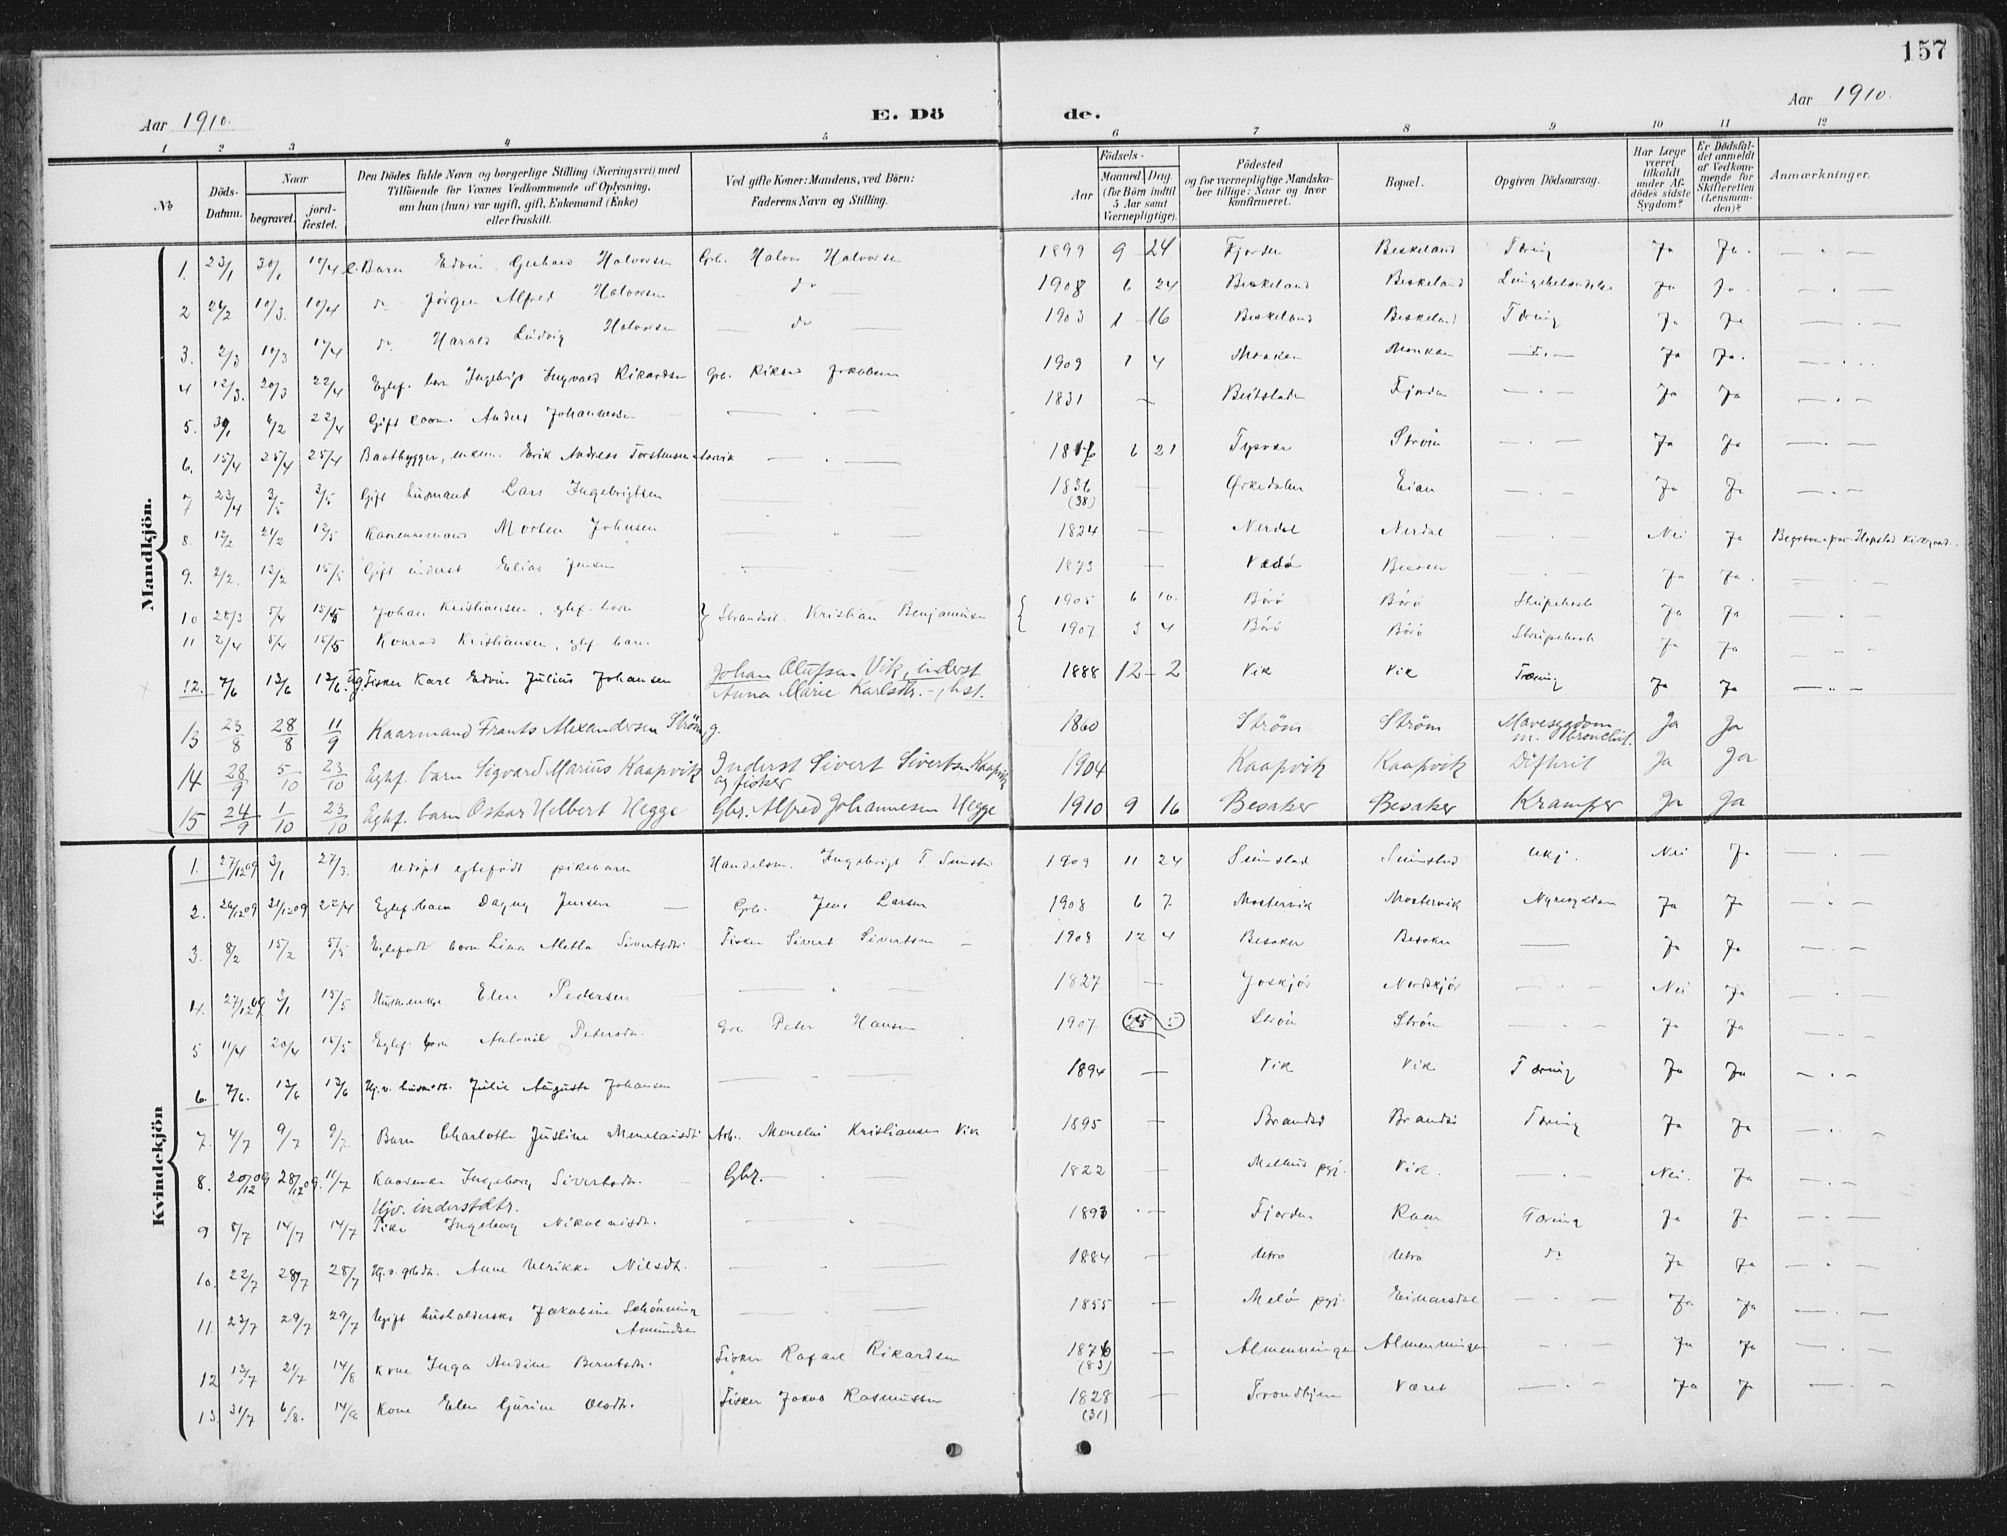 157
Aar 1910.
E. Dö
de.
Aar 1910.
1 2 3 4 5 6 7 8 9 10 11 12
No
Döds-Datum.
Naar
begravet.
jord-fæstet.
Den Dödes fulde Navn og borgerlige Stilling (Næringsvei) med
Tilföiende for Voxnes Vedkommende af Oplysning,
om han (hun) var ugift, gift, Enkemand (Enke)
eller fraskilt.
Ved gifte Koner: Mandens, ved Börn:
Faderens Navn og Stilling.
Födsels-
Aar
Maaned Dag.
(for Börn indtil
5 Aar samt
Værnepligtige).
Födested
og for værnepligtige Mandska-
ber tillige: Naar og hvor
konfirmeret.
Bopæl.
Opgiven Dödsaarsag.
Har Læge
været
tilkaldt
under Af-
dödes sidste
Sygdom?
Er Dödsfal-
det anmeldt
af Vedkom-
mende for
Skifteretten
(Lensman-
den)?
Anmærkninger.
Mandkjön.
1. 23/1 30/1 10/4 Barn Edvin Gerhard Halvorsen Gbr. Halvor Halvorsen 1899 9 24 Fjorden Beskeland Tæring Ja Ja. — " —
2 24/2 10/3. 10/4 do Jörgen Alfred Halvorsen — do — 1908 6 24 Beskeland Beskeland Ja Ja. — . —
3. 2/3 10/3 10/4 do Harald Ludvig Halvorsen — do — 1903 1 16 Beskeland Beskeland Tæring Ja Ja — . —
4 12/3. 20/3 22/4 Egtef. barn Ingvald Rikardsen Gbr. Rikard Jakobsen 1909 1 4 Monken Ja Ja. — . —
5. 6/2 22/4 Gift Anders Johannessen — . — 1831 — Beitstaden Fjorden — . — Ja Ja — . —
6. 15/4 25/4 25/4 Baatbygger, enkem. Erik Andreas Torstensen — . — 6 21 Ström — . — Ja Ja — . —
7 23/4 3/5 3/5 Gift husmand Lars Ingebrigtsen — . — 1836 (38) — Ørkedalen Eian — . — Ja Ja — . —
8. 12/2 21/2 Morten Johnsen — . — 1824 — Nerdal Nerdal Nei Ja
9. 2/2. 13/2 15/5 Gift inderst Elias Jensen — . — 1873 — — . — Ja Ja. — . —
10 28/3 5/4 15/5 Johan Kristiansen, egtef. barn } Strandsit. Kristian Benjaminsen { 1905 6 10. Börö Börö Strupehoste Ja Ja — . —
11 2/4 5/4 15/5 Konrad Kristiansen, egtef. barn. 1907 3 4 Börö Börö Strupehoste Ja Ja — . —
12. 7/6 13/6 13/6. Ug. Fisker Karl Edvin Julius Johansen Johan Olufsen Vik, inderst
Anna Marie Karlsdtr. –, hst. 1888 12 – 2 Vik Vik Tæring Ja Ja — " —
13 23/8 28/8 11/9 Kaarmand Frants Alexandersen Ström, g. 1860 Strøm Strøm Mavesygdom
m. bronchit. Ja Ja
14 28/9 5/10 23/10 Egtf. barn Sigvard Marius Kaapvik Inderst Sivert Sivertsen Kaapvik
og fisker 1904 Kaapvik Kaapvik Difterit Ja Ja
15 24/9 1/10 23/10 Egtf. barn Oskar Helbert Hegge Gbr. Alfred Johannesen Hegge 1910 9 16 Besaker Besaker Kramper Ja Ja
Kvindekjön
1. 27/12 09 3/1 27/3. Udöpt egtefödt pikebarn Handelsm. Ingebrigt T. 1909 11 24 Sumstad Sumstad Ukj. Nei Ja — . —
2. 26/12 09 31/12 09 22/4 Egtef. barn Dagny Jensen — Gbr. Jens Larsen 1908 6 7. Mostervik Mostervik Nyresygdom Ja Ja — . —
3. 8/2 15/2 5/5 Egtefödt barn Lina Metta Sivertsdtr. Fisker Sivert Sivertsen – 1908 12 4 Besaker Besaker — Ja Ja — . —
4. 27/12 09 3/1 15/5 Elen Pedersen — " — 1827 — Nordskjör — . — Nei Ja — . —
5 11/4 20/4 15/5 Egtef. barn Petersdtr. Gbr Peter Hansen 1907 Ström Ström — . — Ja Ja — . —
6. 7/6. 13/6 13/6 Hj.v. Julie Augusta Johansen — . — 1894 — Vik Vik Tæring Ja Ja — . —
7. 4/7 9/7 9/7. Barn Charlotte Justine Menelaisdtr Arb. Menelai Kristiansen Vik 1895 — Brandsö Brandsö Tæring Ja Ja — . —
8. 20/12 09 28/12 09. 11/7 Ingeborg Sivertsdtr. Gbr. — . — 1822 — Melhus pgj. Vik. — . — Nei. Ja — . —
9 8/7 14/7 14/7 Hjv. inderstdtr.
Pike Ingeborg Nikolaisdtr. — . — 1893 — Fjorden Raan Tæring Ja Ja — . —
10. 22/7 28/7 28/7 Hj.v. gbrdtr. Anne Ulrikke Nilsdtr. — . — 1884 — Utro Utro do Ja Ja — . —
11 23/7 29/7 29/7 Ugift husholderske Jakobine Schönning
Amundsen — . — 1855 — Melö pgj. Einarsdal — . — Ja Ja — . —
12 13/7 21/7 14/8 Kone Inga Andine Berntsdtr. Fisker Rafael Rikardsen 1876 (83) — Almenningen Almenningen — . — Ja Ja — . —
13. 31/7 6/8. 14/8 Kone Elen Gurine Olsdtr. Fisker Jakob Rasmussen 1828 (31) — Trondhjem Været — . — Ja Ja — . —